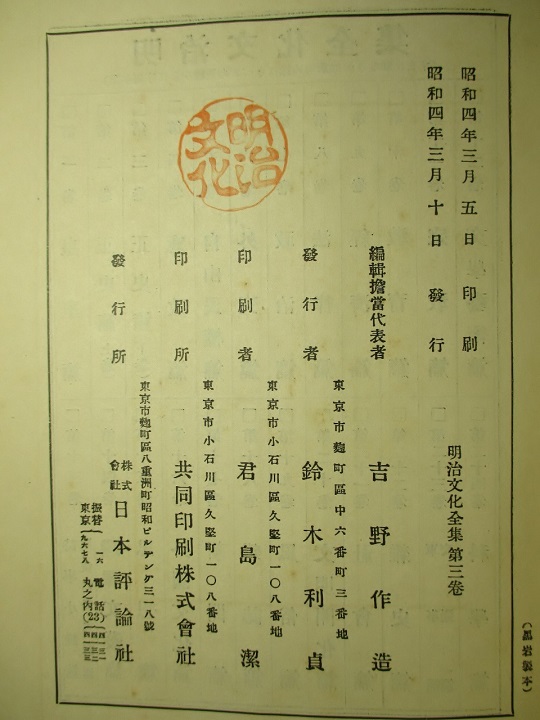 昭和四年三月五日印刷
昭和四年三月十日發行
明治文化全集 第三卷
編輯擔當代表者 吉野作造
東京市麴町區中六番町三番地
發行者 鈴木利貞
東京市小石川區久堅町一〇八番地
印刷者 君島潔
東京市小石川區久堅町一〇八番地
印刷所 共同印刷株式會社
東京市麴町區八重洲町昭和ビルデング三一八號
發行所 株式會社 日本評論社
振替東京
電話丸之内(23)
明治文化